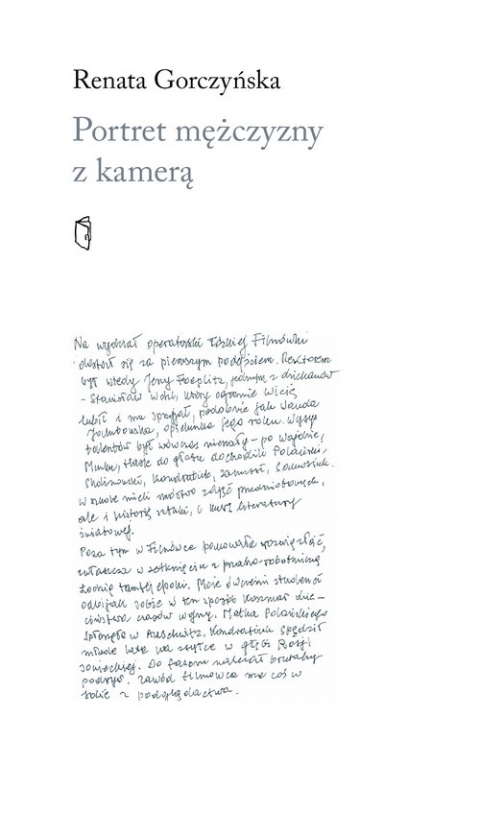 Renata Gorczyńska
Portret mężczyzny
z kamerą
Na wydział operatorski łódzkiej Filmówki
dostał się za pierwszym podejściem. Rektorem
był wtedy Jerzy Toeplitz, jednym z dziekanów
- Stanisław Wohl, który ogromnie Wicię
lubił i mu sprzyjał, podobnie jak Wanda
Jakubowska, opiekunka jego roku. Wysyp
talentów był wówczas niemały – po Wajdzie,
Munku, Hasie do głosu dochodzili Polański,
Skolimowski, Kondratiuk, Zanussi,
W szkole mieli mnóstwo zajęć przedmiotowych,
ale i historię sztuki, i kurs literatury
światowej.
Poza tym w Filmówce panowała rozwiązłość,
zwłaszcza w zetknięciu z pruderią
tamtej epoki. Może ówcześni studenci
odbijali sobie w ten sposób koszmar dzie-
ciństwa czasów wojny. Matka Polańskiego
spłonęła w Auschwitz, Kondratiuk spędził
młode lata na zsyłce w głębi Rosji
sowieckiej. Do fasonu należał brutalny
podryw. Zawód filmowca ma coś w
sobie z podglądactwa.